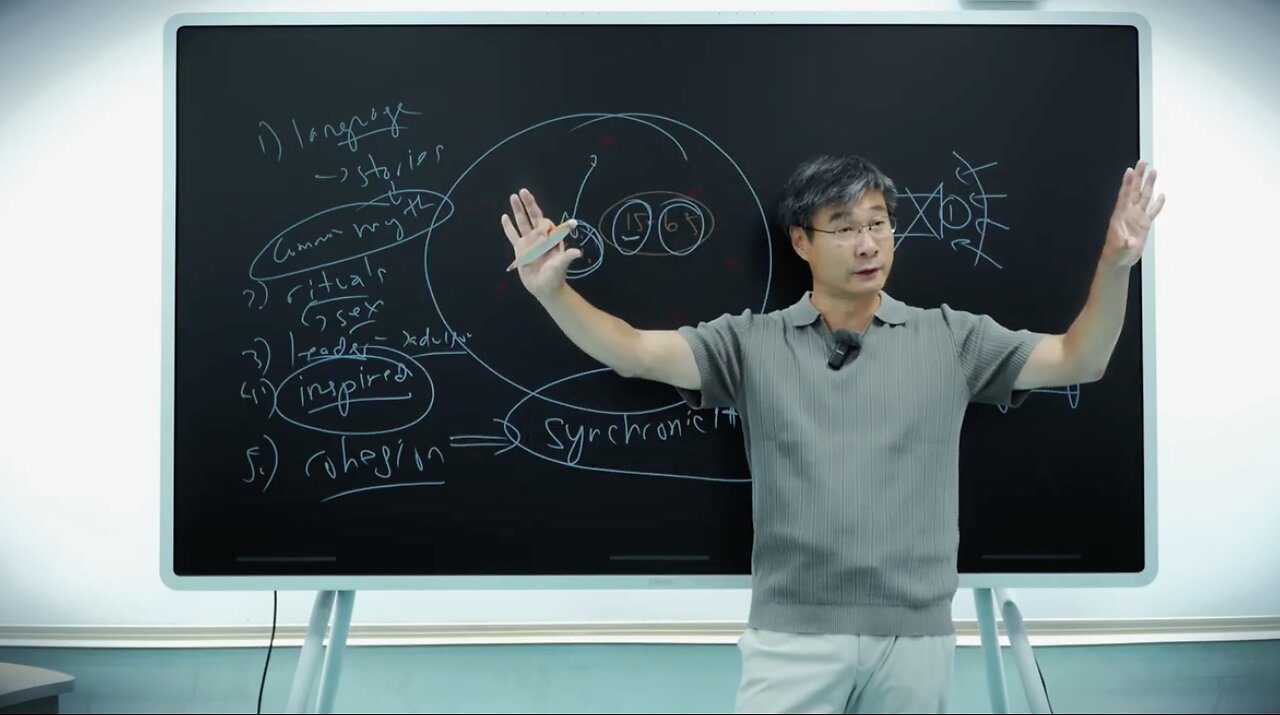 1) language
→ stories
Common myth
2) rituals
→ sex
3) leader-
4.) inspired
5.) cohesion ⇒ synchronicit
15- 65
1